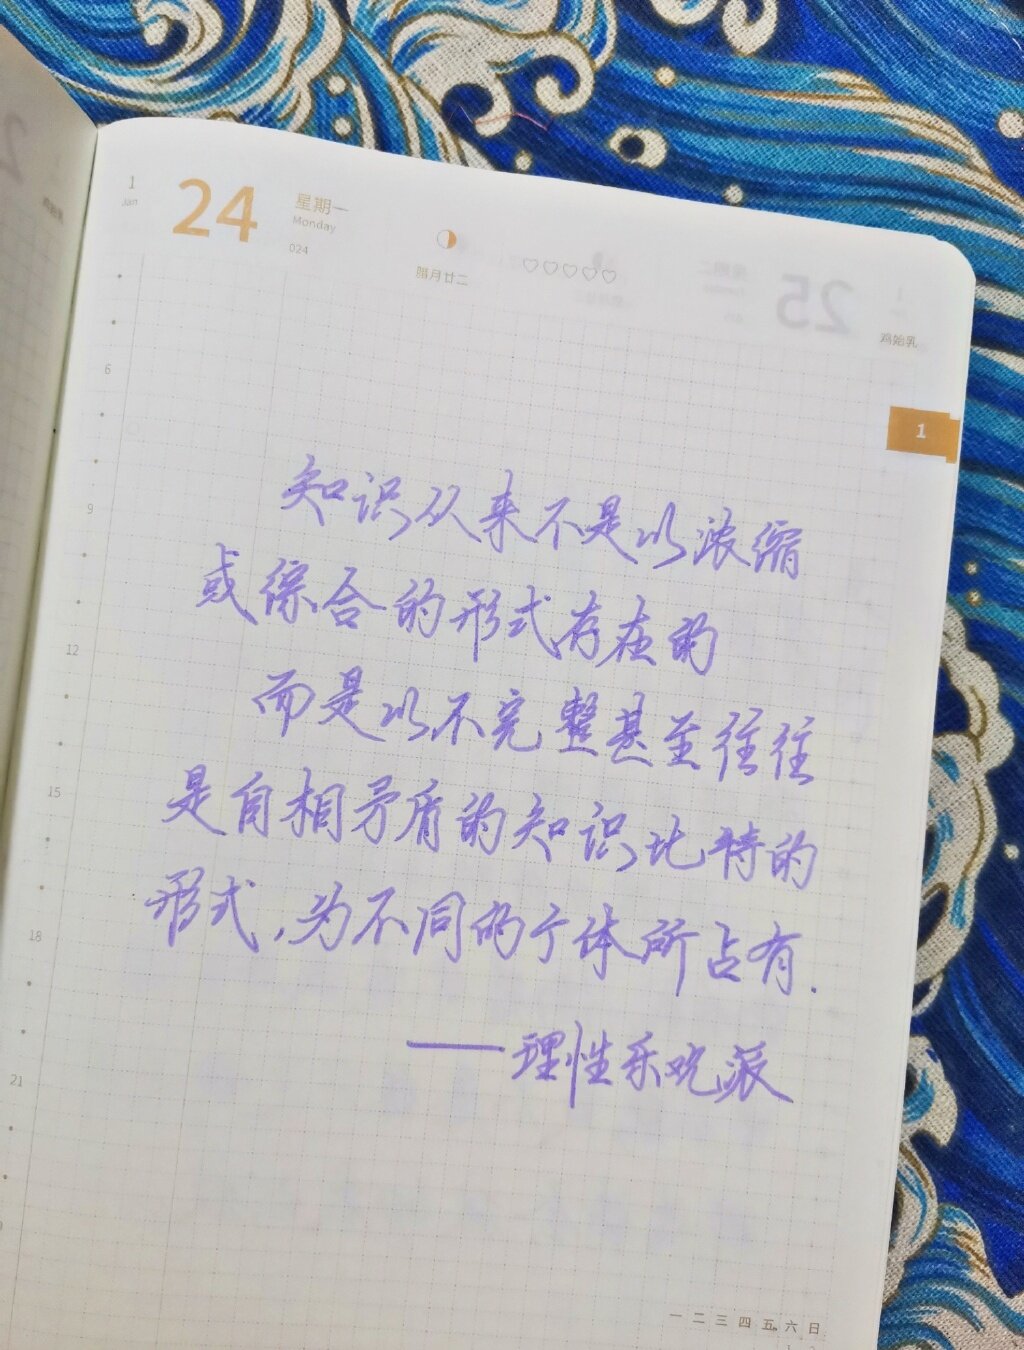 1
Jan
24
星期一
Monday
024
腊月廿二
鸡始乳
1
6
9
12
15
18
21
知识从来不是以浓缩
或综合的形式存在的
而是以不完整甚至往往
是自相矛盾的知识比特的
形式，为不同的个体所占有.
——理性乐观派
一 二 三 四 五 六 日